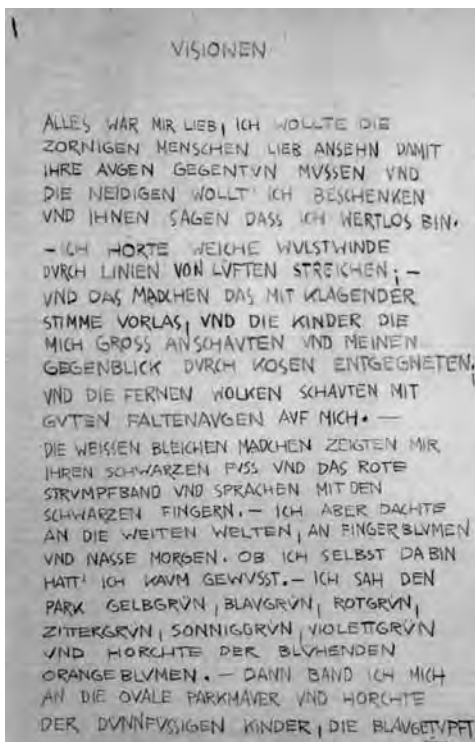 1
VISIONEN
ALLES WAR MIR LIEB, ICH WOLLTE DIE
ZORNIGEN MENSCHEN LIEB ANSEHN DAMIT
IHRE AVGEN GEGENTVN MUSSEN VND
DIE NEIDIGEN WOLLT' ICH BESCHENKEN
VND IHNEN SAGEN DASS ICH WERTLOS BIN.
– ICH HORTE WEICHE WVLSTWINDE
DVRCH LINIEN VON LVFTEN STREICHEN; –
VND DAS MADCHEN DAS MIT KLAGENDER
STIMME VORLAS, VND DIE KINDER DIE
MICH GROSS ANSCHAVTEN VND MEINEN
GEGENBLICK DVRCH KOSEN ENTGEGNETEN,
VND DIE FERNEN WOLKEN SCHAVTEN MIT
GVTEN FALTENAVGEN AVF MICH. —
DIE WEISSEN BLEICHEN MADCHEN ZEIGTEN MIR
IHREN SCHWARZEN FVSS VND DAS ROTE
STRVMPFBAND VND SPRACHEN MIT DEN
SCHWARZEN FINGERN. – ICH ABER DACHTE
AN DIE WEITEN WELTEN, AN FINGERBLVMEN
VND NASSE MORGEN. OB ICH SELBST DA BIN
HATT' ICH KAVM GEWVSST. – ICH SAH DEN
PARK GELBGRVN, BLAVGRVN, ROTGRVN,
ZITTERGRVN, SONNIGGRVN, VIOLETTGRVN
VND HORCHTE DER BLVHENDEN
ORANGEBLVMEN. – DANN BAND ICH MICH
AN DIE OVALE PARKMAVER VND HORCHTE
DER DVNNFVSSIGEN KINDER, DIE BLAVGETVPFT